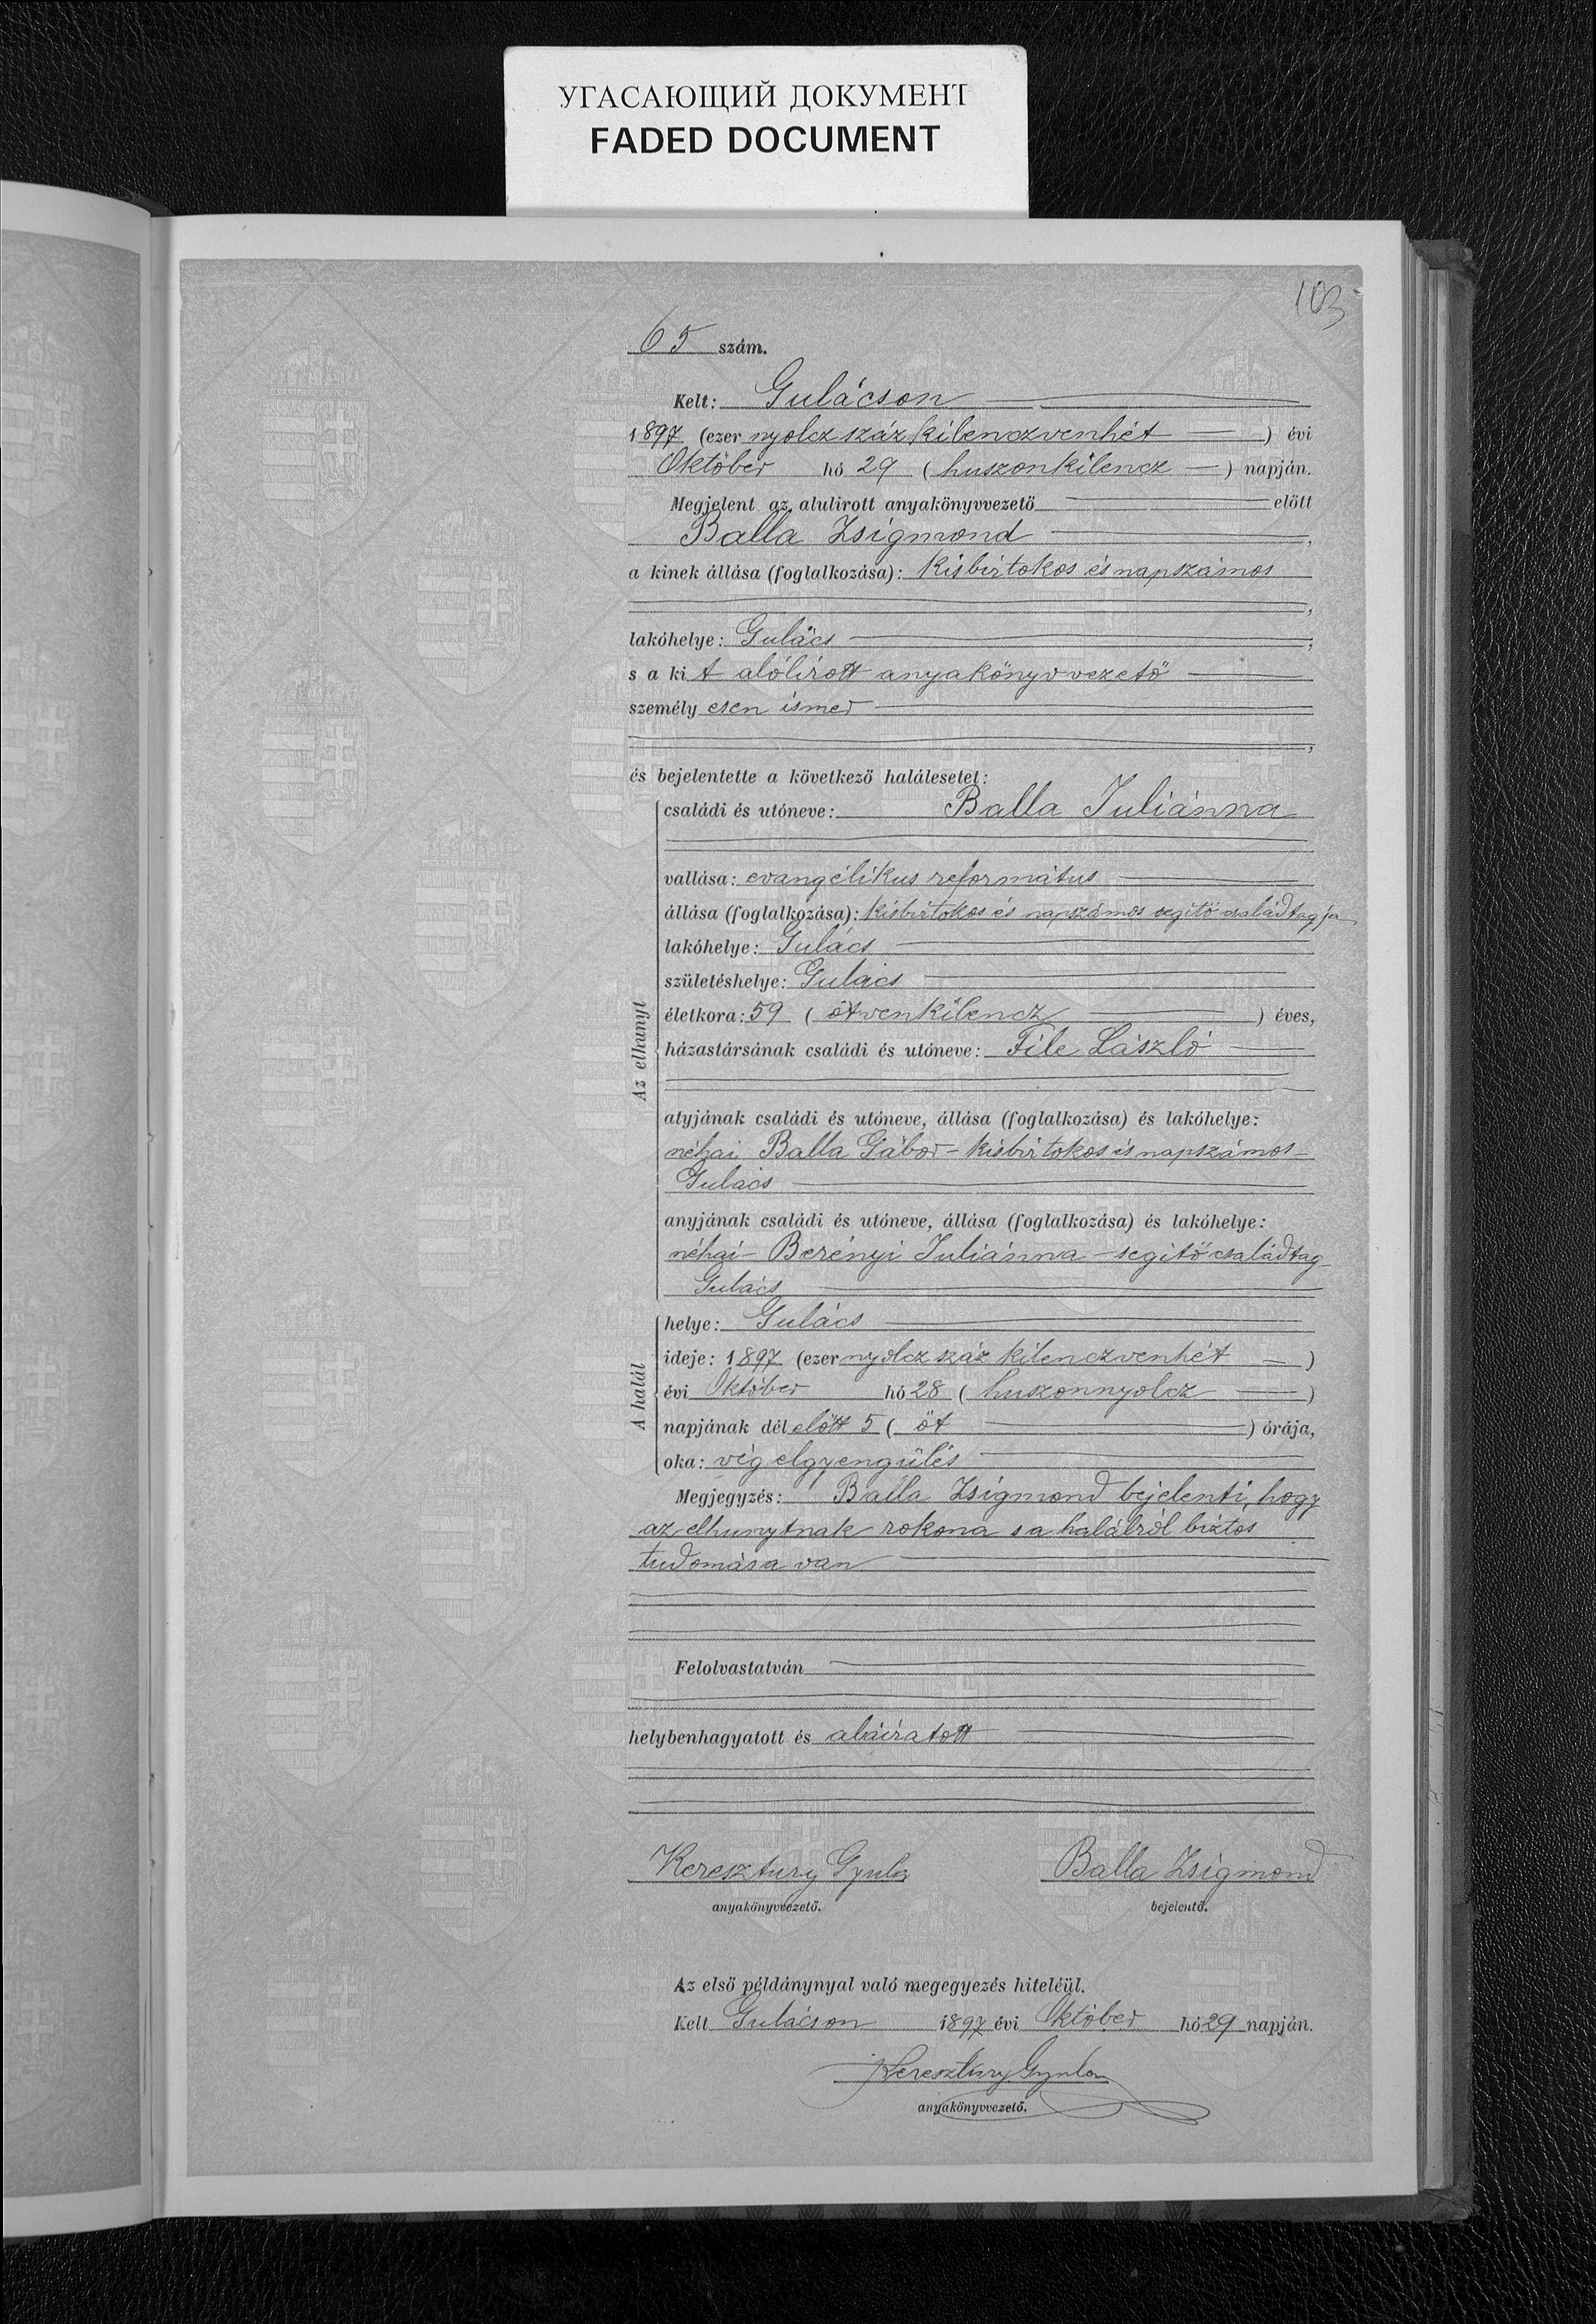 УГАСАЮЩИЙ ДОКУМЕНТ
FADED DOCUMENT
103
65 szám.
Kelt: Gulácson
1897 (ezer nyolcz száz kilenczvenhét) évi
Október hó 29 (huszonkilencz) napján.
Megjelent az alulirott anyakönyvvezető előtt
Balla Zsigmond,
a kinek állása (foglalkozása): kisbirtokos és napszámos
,
lakóhelye: Gulács;
s a kit alólírott anyakönyvvezető
személyesen ismer
,
és bejelentette a következő halálesetet:
Az elhunyt
családi és utóneve: Balla Juliánna
vallása: evangélikus református
állása (foglalkozása): kisbirtokos és napszámos segítő családtagja
lakóhelye: Gulács
születéshelye: Gulács
életkora: 59 (ötvenkilencz) éves,
házastársának családi és utóneve: File László
atyjának családi és utóneve, állása (foglalkozása) és lakóhelye:
néhai Balla Gábor - kisbirtokos és napszámos -
Gulács
anyjának családi és utóneve, állása (foglalkozása) és lakóhelye:
néhai - Berényi Juliánna - segítő családtag -
Gulács
A halál
helye: Gulács
ideje: 1897 (ezer nyolcz száz kilenczvenhét)
évi Október hó 28 (huszonnyolcz)
napjának délelőtt 5 (öt) órája,
oka: vég elgyengülés
Megjegyzés: Balla Zsigmond bejelenti, hogy
az elhunytnak rokona s a halálról biztos
tudomása van
Felolvastatván
helybenhagyatott és aláíratott
Keresztury Gyula Balla Zsigmond
anyakönyvvezető. bejelentő.
Az első példánynyal való megegyezés hiteléül.
Kelt Gulácson 1897 évi Október hó 29 napján.
Keresztury Gyula
anyakönyvvezető.